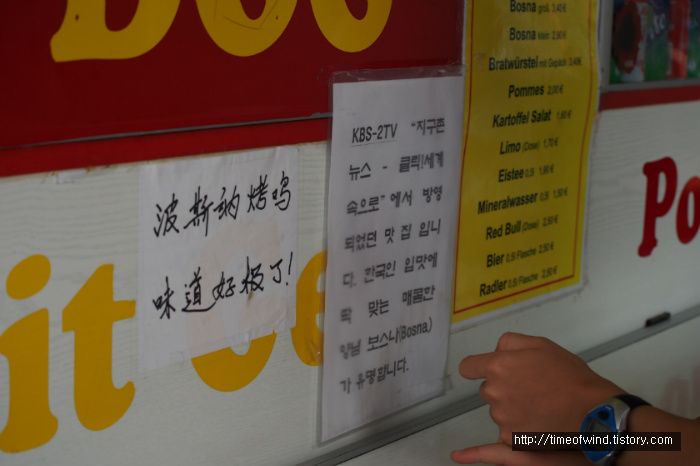 Bosna groß 3,40€
Bosna klein 2,90€
Bratwürstel mit Gebäck 3,40€
Pommes 2,00€
Kartoffel Salat 1,60€
Limo (Dose) 1,70€
Eistee 0,5l 1,90€
Mineralwasser 0,5l 1,50€
Red Bull (Dose) 2,50€
Bier 0,5l Flasche 2,50€
Radler 0,5l Flasche 2,50€
KBS-2TV "지구촌
뉴스 - 클릭!세계
속으로"에서 방영
되었던 맛 집 입니
다. 한국인 입맛에
딱 맞는 매콤한
양념 보스나(Bosna)
가 유명합니다.
波斯纳烤鸡
味道好极了!
it
Po
http://timeofwind.tistory.com